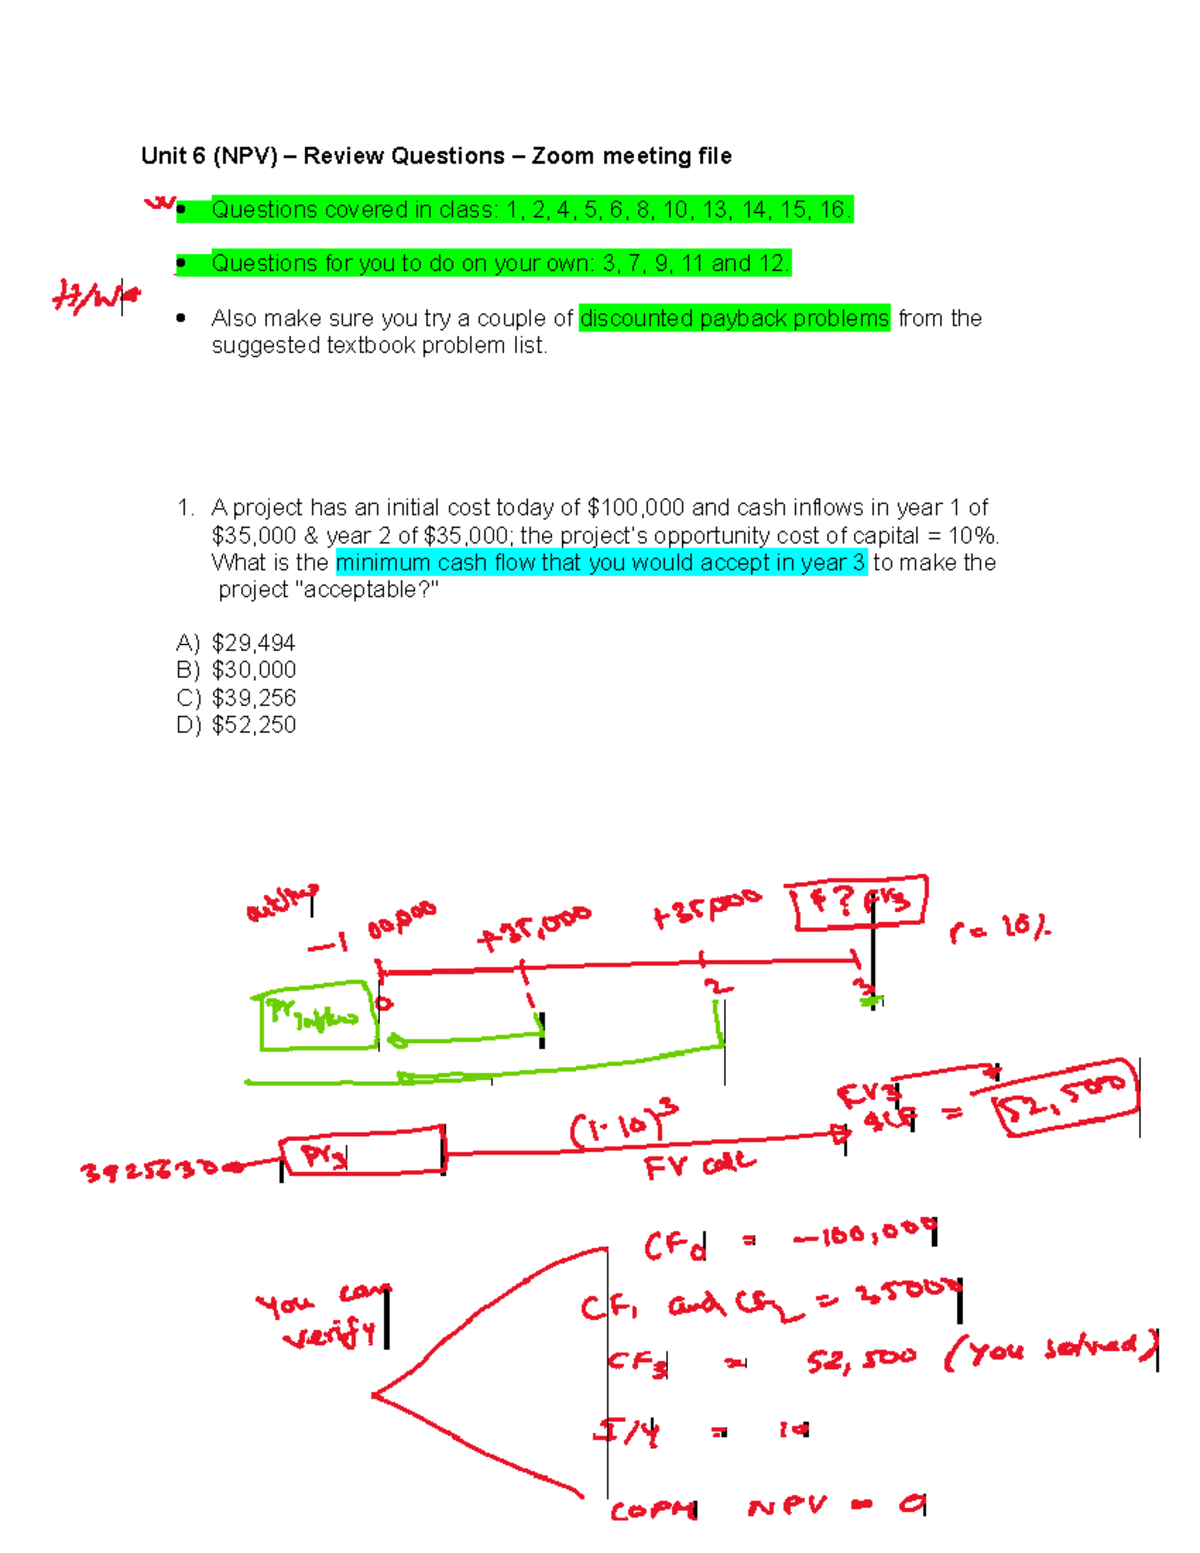 Unit 6 (NPV) – Review Questions – Zoom meeting file
• Questions covered in class: 1, 2, 4, 5, 6, 8, 10, 13, 14, 15, 16.
• Questions for you to do on your own: 3, 7, 9, 11 and 12.
H/W
• Also make sure you try a couple of discounted payback problems from the
suggested textbook problem list.
1. A project has an initial cost today of $100,000 and cash inflows in year 1 of
$35,000 & year 2 of $35,000; the project's opportunity cost of capital = 10%.
What is the minimum cash flow that you would accept in year 3 to make the
project "acceptable?"
A) $29,494
B) $30,000
C) $39,256
D) $52,250
-100,000 +35,000 +35,000 ? FV3 r = 10%
0 2 3
PV
FV3
= 52,500
(1.10)^3
3925630 PV3
FV calc
CF0 = -100,000
You can
verify
CF1 and CF2 = 35000
CF3 = 52,500 (you solved)
I/Y = 10
NPV = 0